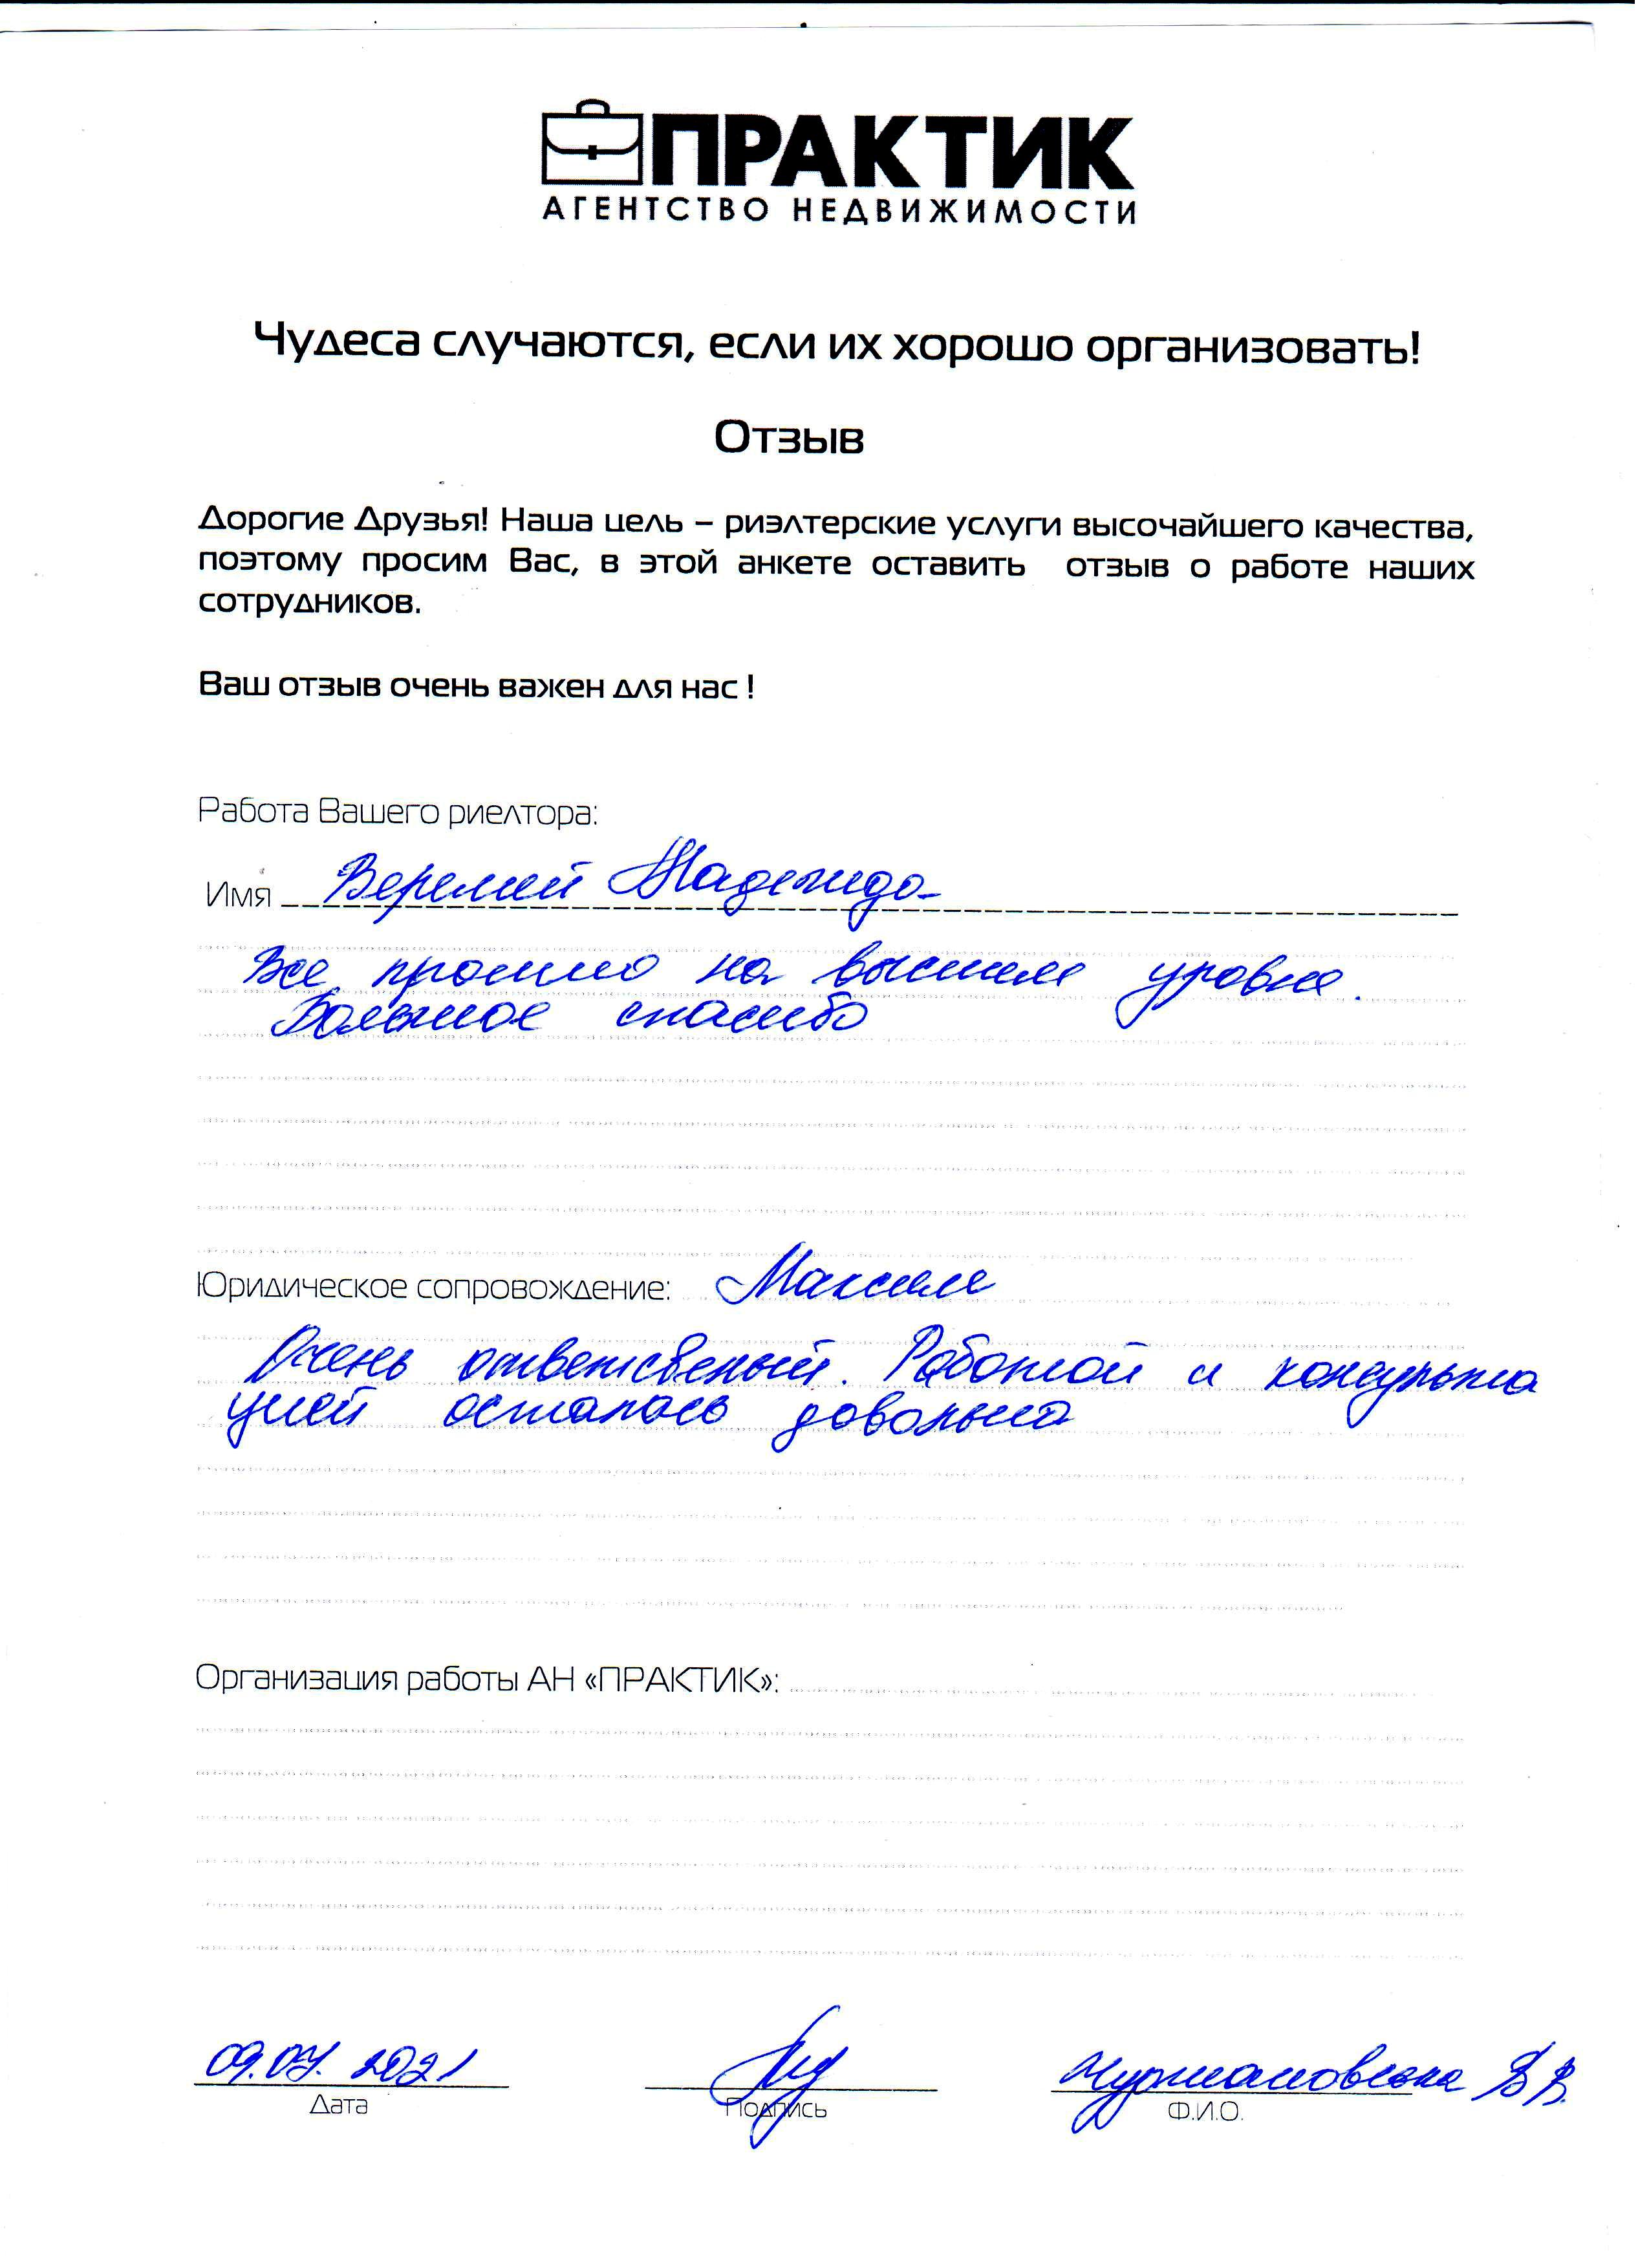 ПРАКТИК
АГЕНТСТВО НЕДВИЖИМОСТИ
Чудеса случаются, если их хорошо организовать!
Отзыв
Дорогие Друзья! Наша цель – риэлтерские услуги высочайшего качества,
поэтому просим Вас, в этой анкете оставить отзыв о работе наших
сотрудников.
Ваш отзыв очень важен для нас !
Работа Вашего риелтора:
Имя Веремий Надежда
Все прошло на высшем уровне.
Большое спасибо
Юридическое сопровождение: Максим
Очень ответственый. Работой и консульта
цией осталась довольна
Организация работы АН «ПРАКТИК»:
09.07.2021
Дата
Подпись
Ф.И.О.